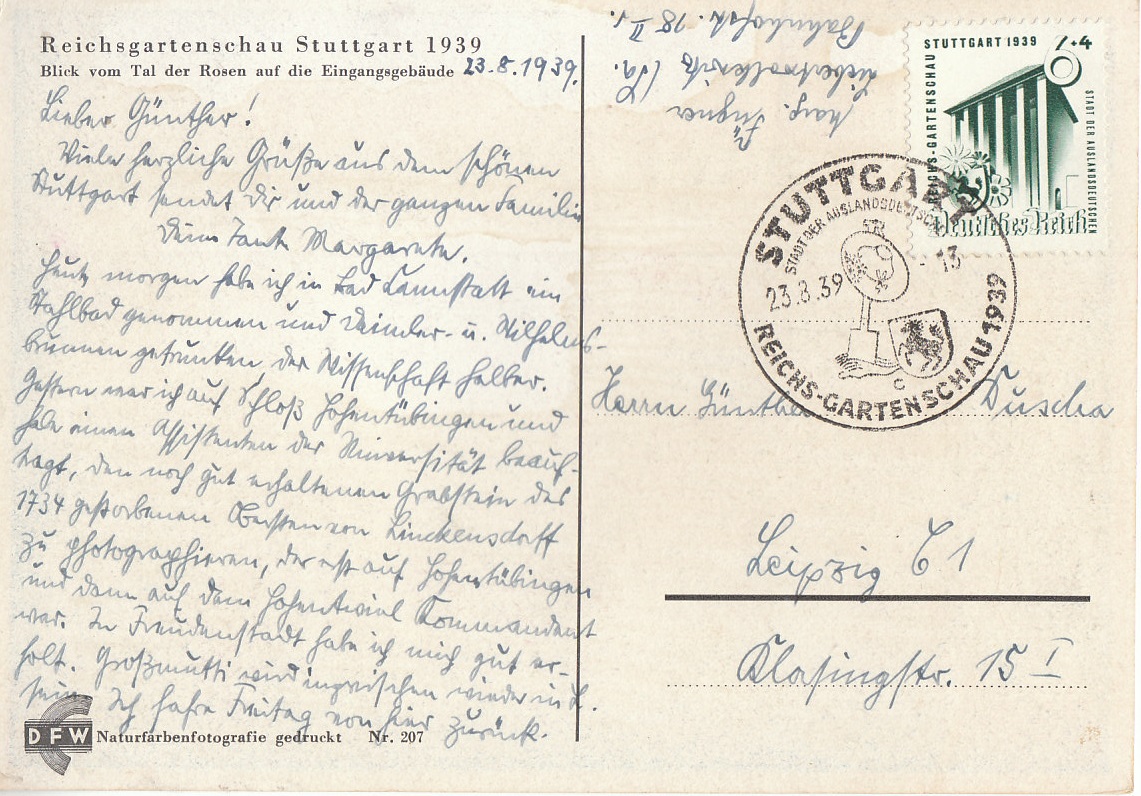 Reichsgartenschau Stuttgart 1939
Blick vom Tal der Rosen auf die Eingangsgebäude 23.8.1939.
Lieber Günther!
Viele herzliche Grüße aus dem schönen
Stuttgart sendet Dir und der ganzen Familie
Deine Tante Margarete.
Heute morgen habe ich in Bad Cannstatt ein
Stahlbad genommen und Daimler- u. Wilhelms-
brunnen getrunken der Wissenschaft halber.
Gestern war ich auf Schloß Hohentübingen und
habe einen Assistenten der Universität beauf-
tragt, den noch gut erhaltenen Grabstein des
1734 gestorbenen Obersten von Linckensdorff
zu photographieren, der erst auf Hohentübingen
und dann auf dem Hohentwiel Kommandant
war. In Freudenstadt habe ich mich gut er-
holt. Großmutti wird inzwischen wieder in L.
sein. Ich fahre Freitag von hier zurück.
DFW Naturfarbenfotografie gedruckt Nr. 207
Marg.
Liebertwolkwitz
Bahnhofstr. 18 II
STUTTGART 1939 6+4
REICHS-GARTENSCHAU
STADT DER AUSLANDSDEUTSCHEN
Deutsches Reich
STUTTGART
STADT DER AUSLANDSDEUTSCHEN
23.8.39 - 13
c
REICHS-GARTENSCHAU 1939
Herrn Günther Duscha
Leipzig C 1
Klasingstr. 15 I